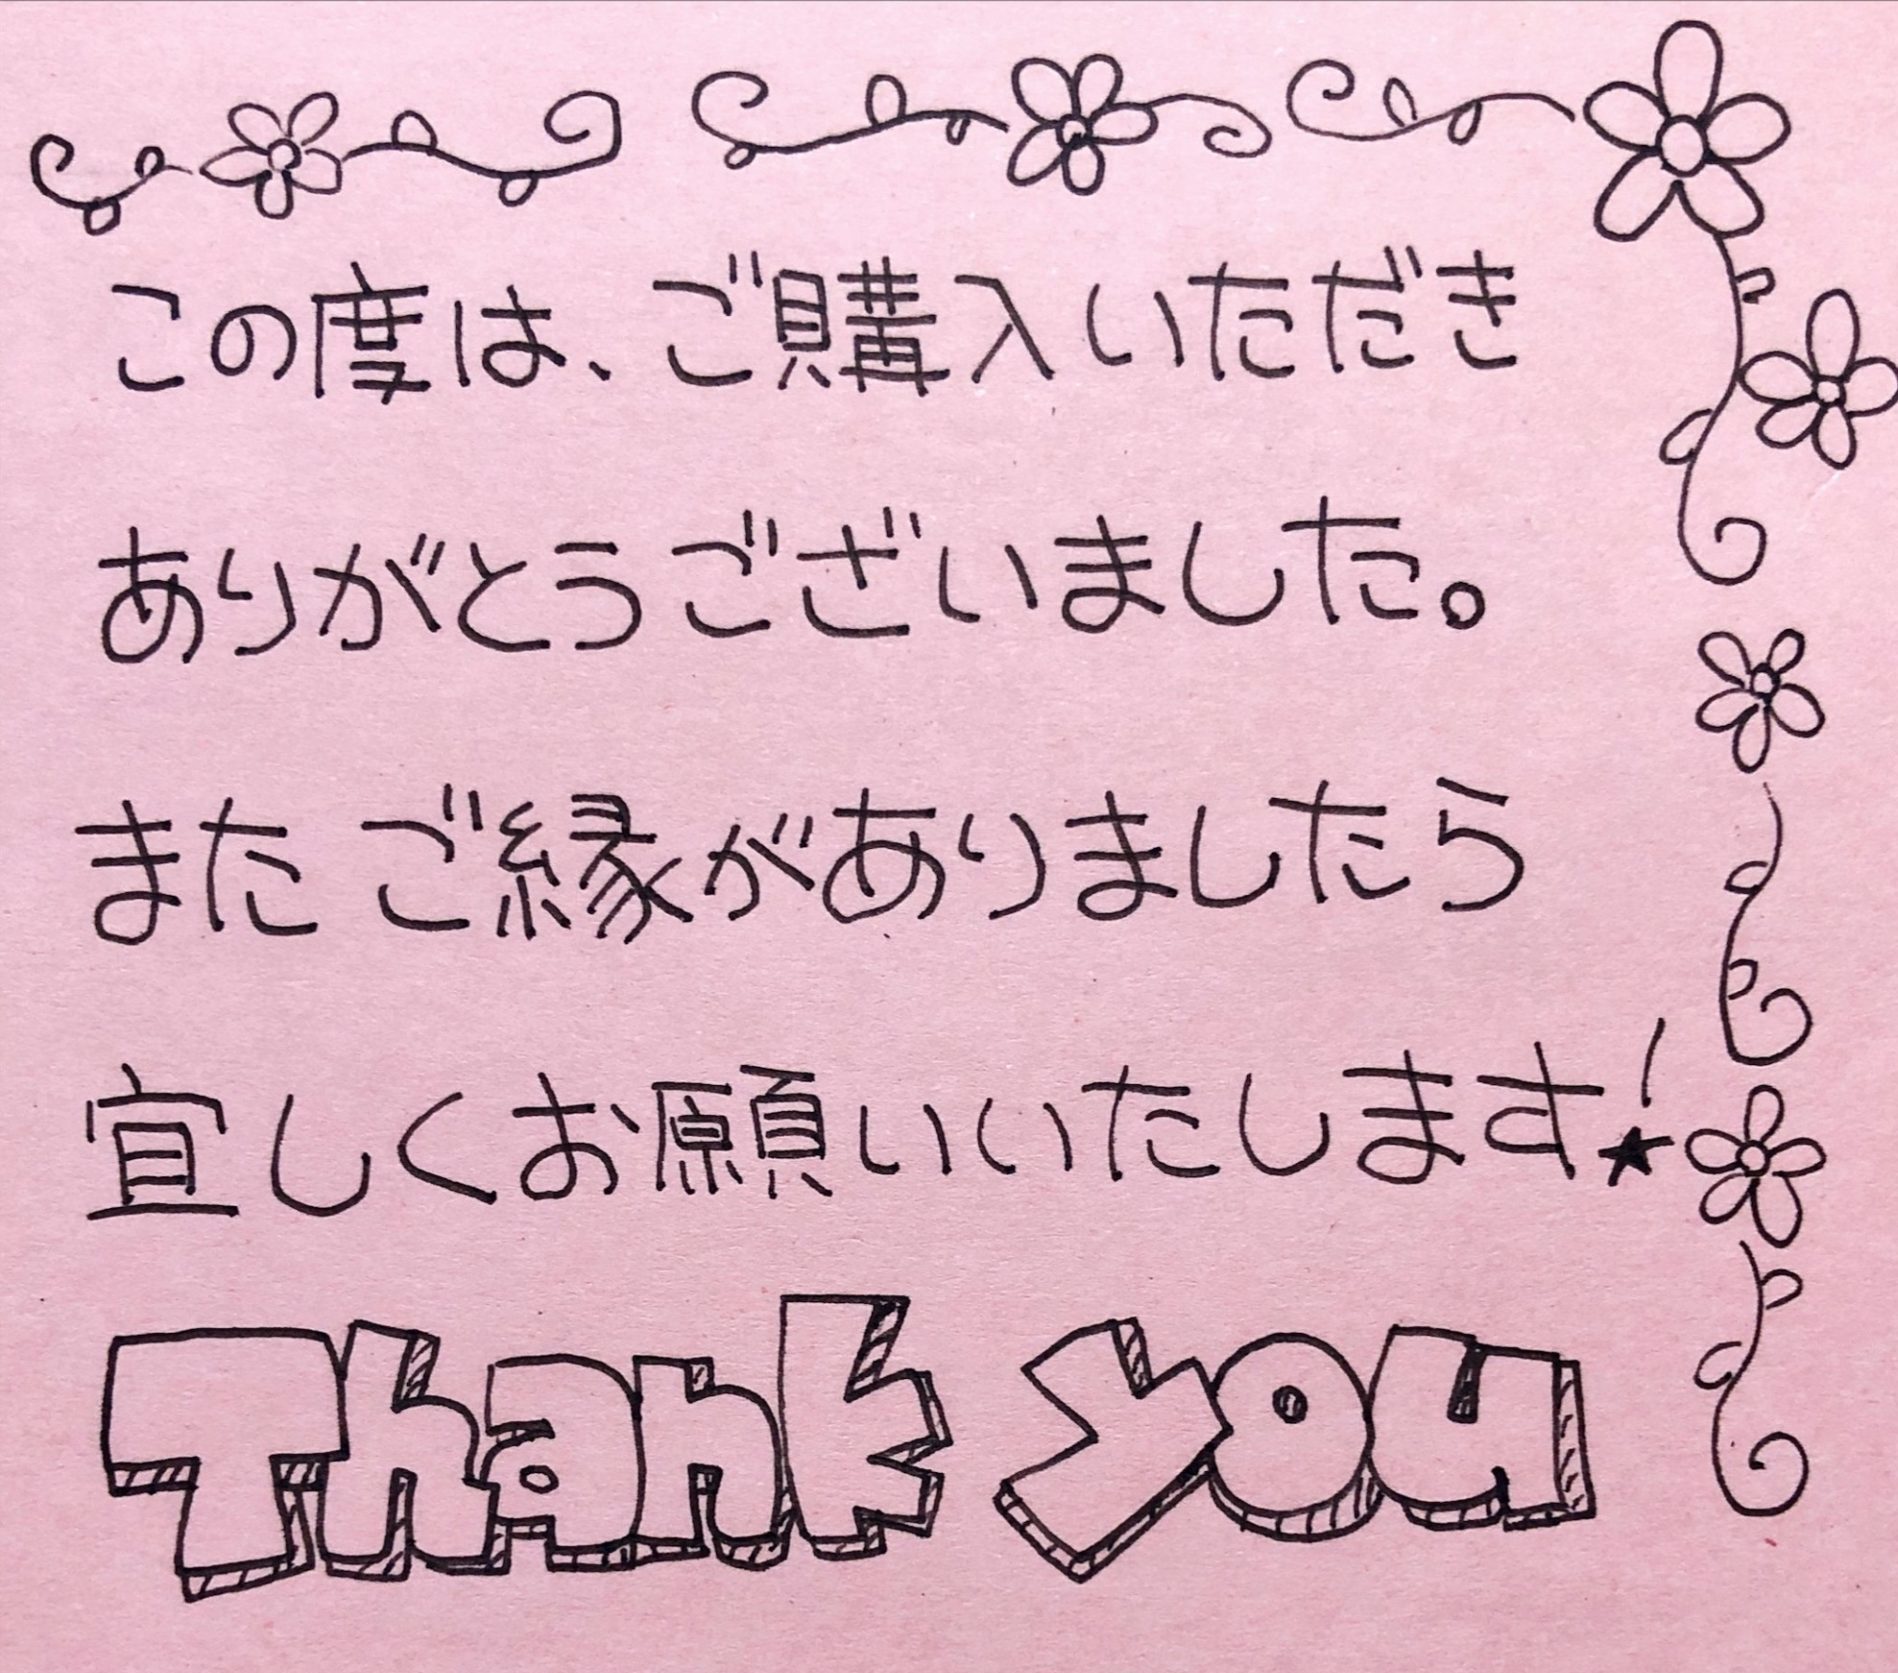 この度は、ご購入いただき
ありがとうございました。
またご縁がありましたら
宜しくお願いいたします!
Thank you